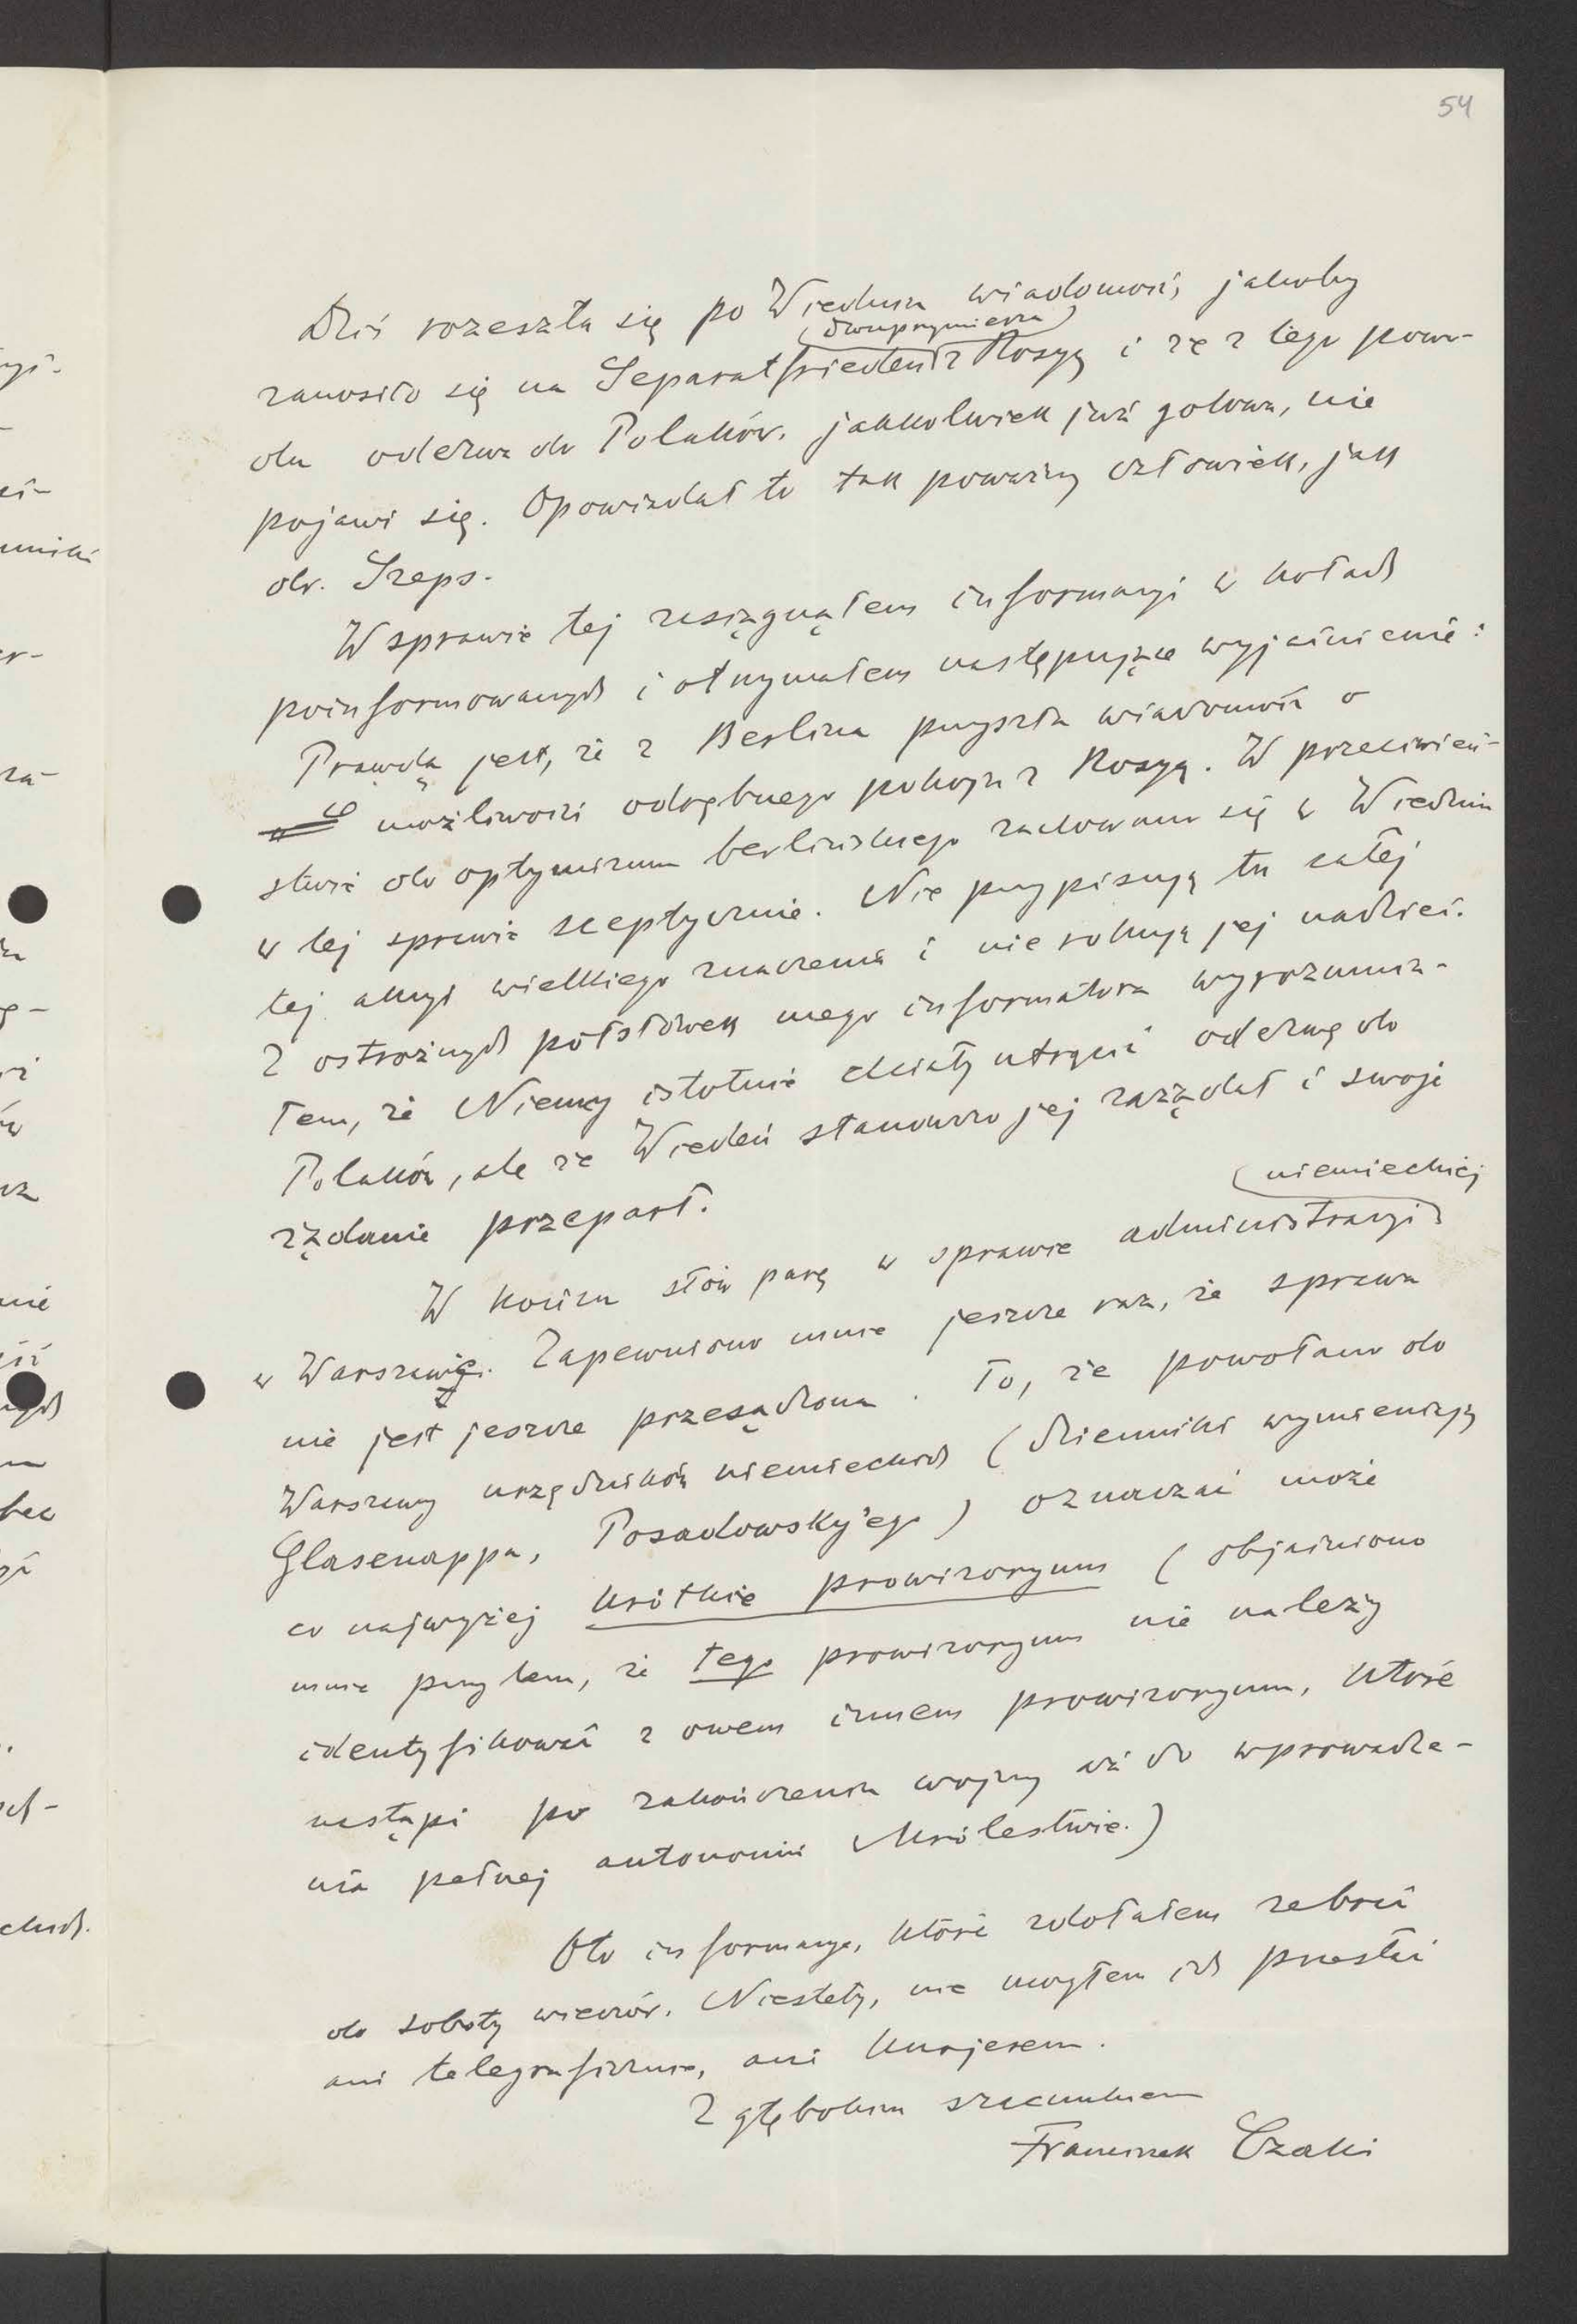 54
Dziś rozeszła się po Wiedniu wiadomość, jakoby
(dwuprzymierza)
zanosiło się na Separatfrieden z Rosyą i że z tego powo-
du odezwa do Polaków, jakkolwiek już gotowa, nie
pojawi się. Opowiadał to tak poważny człowiek, jak
dr. Szeps.
W sprawie tej zasiągnąłem informacyi w kołach
poinformowanych i otrzymałem następujące wyjaśnienie:
Prawdą jest, że z Berlina przyszła wiadomość o
możliwości odrębnego pokoju z Rosyą. W przeciwień-
stwie do optymizmu berlińskiego zachowano się w Wiedniu
w tej sprawie sceptycznie. Nie przypisują tu całej
tej akcyi wielkiego znaczenia i nie rokują jej nadziei.
Z ostrożnych półsłówek mego informatora wyrozumia-
łem, że Niemcy istotnie chciały utrącić odezwę do
Polaków, ale że Wiedeń stanowczo jej zażądał i swoje
żądanie przeparł.
(niemieckiej
W końcu słów parę w sprawie administracyi
w Warszawie. Zapewniono mnie jeszcze raz, że sprawa
nie jest jeszcze przesądzona. To, że powołano do
Warszawy urzędników niemieckich (dzienniki wymieniają
Glasenappa, Posadowsky'ego) oznaczać może
co najwyżej krótkie prowizoryum (objaśniono
mnie przytem, że tego prowizoryum nie należy
identyfikować z owem innem prowizoryum, które
nastąpi po zakończeniu wojny aż do wprowadze-
nia pełnej autonomii w Królestwie.)
Oto informacye, które zdołałem zebrać
do soboty wieczór. Niestety, nie mogłem ich przesłać
ani telegraficznie, ani kurjerem.
Z głębokim szacunkiem
Franciszek Czaki